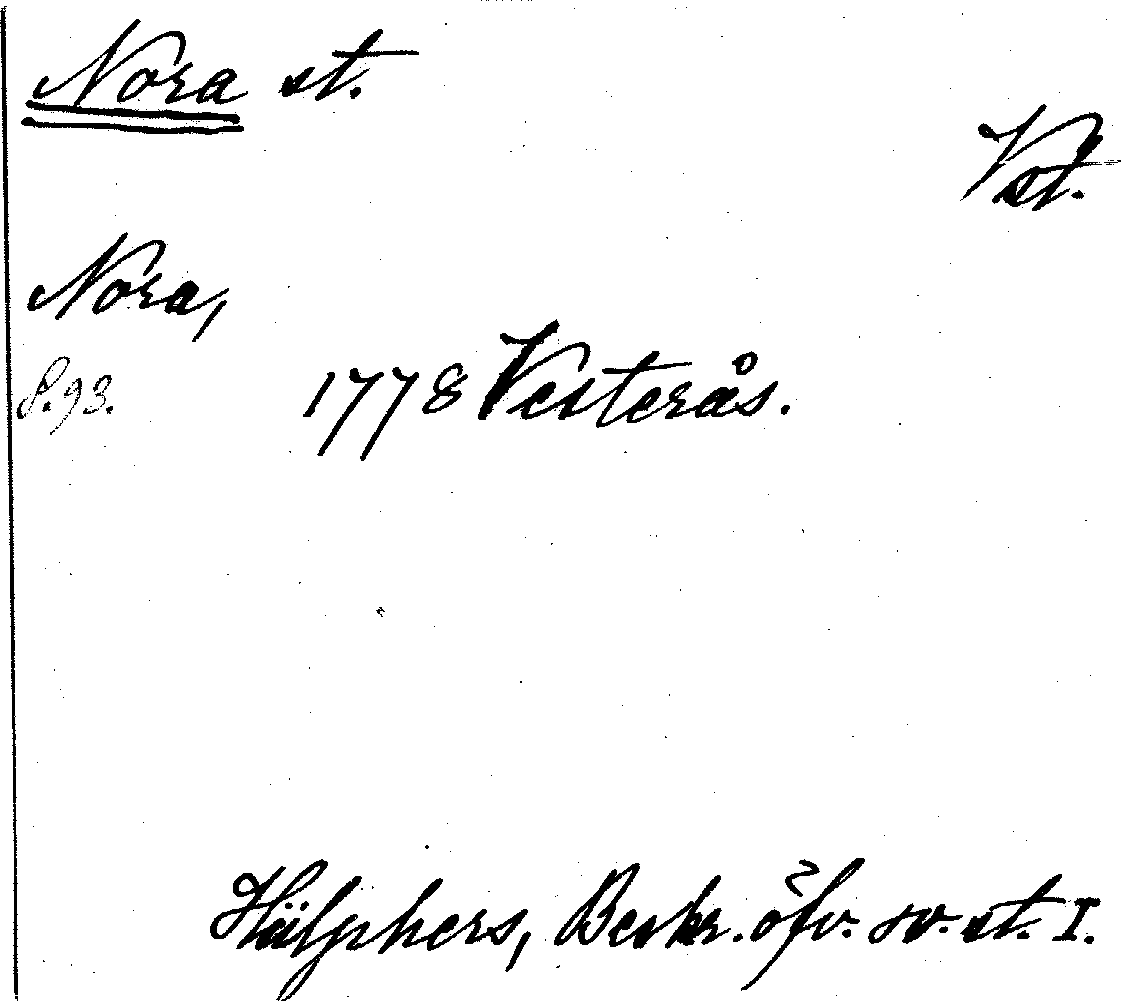 Nora st.
Vst.
Nora,
8.93.
1778 Vesterås.
Hülphers, Beskr. öfv. sv. st. I.